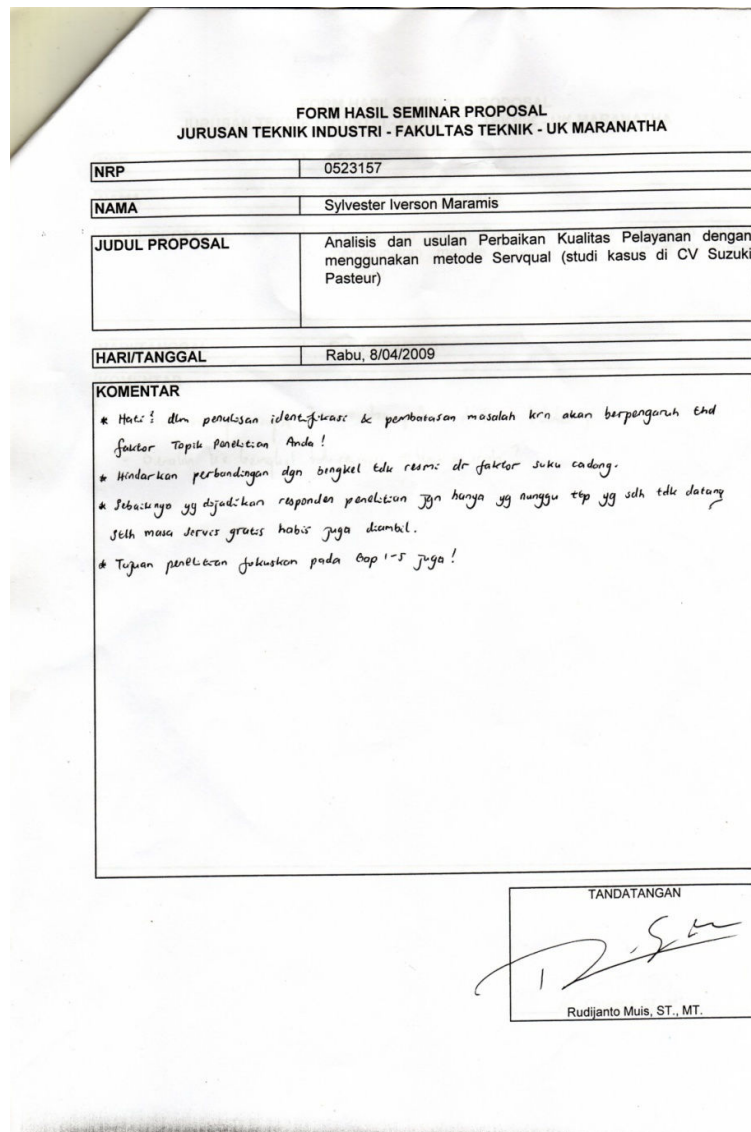 FORM HASIL SEMINAR PROPOSAL
JURUSAN TEKNIK INDUSTRI - FAKULTAS TEKNIK - UK MARANATHA
NRP 0523157
NAMA Sylvester Iverson Maramis
JUDUL PROPOSAL Analisis dan usulan Perbaikan Kualitas Pelayanan dengan
menggunakan metode Servqual (studi kasus di CV Suzuki
Pasteur)
HARI/TANGGAL Rabu, 8/04/2009
KOMENTAR
* Hati² dlm penulisan identifikasi & pembatasan masalah krn akan berpengaruh thd
faktor Topik Penelitian Anda !
* Hindarkan perbandingan dgn bengkel tdk resmi dr faktor suku cadang.
* Sebaiknya yg dijadikan responden penelitian jgn hanya yg nunggu ttp yg sdh tdk datang
stlh masa servis gratis habis juga diambil.
* Tujuan penelitian fokuskan pada Gap 1-5 juga !
TANDATANGAN
Rudijanto Muis, ST., MT.